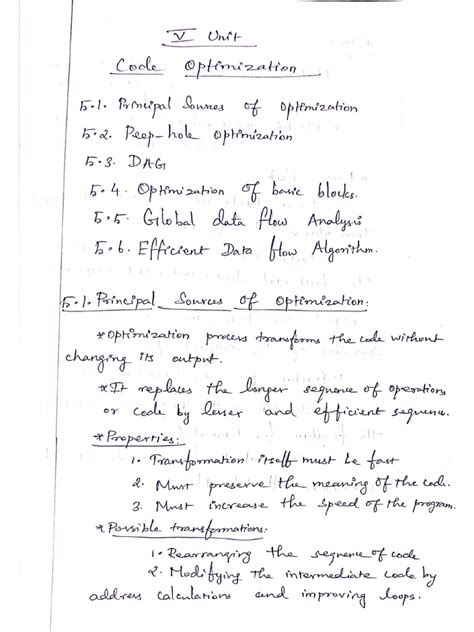 V Unit
Code Optimization
5.1. Principal Sources of Optimization
5.2. Peep-hole Optimization
5.3. DAG
5.4. Optimization of basic blocks.
5.5. Global data flow Analysis
5.6. Efficient Data flow Algorithm.
5.1. Principal Sources of Optimization:
* Optimization process transforms the code without
changing its output.
* It replaces the longer sequence of operations
or code by lesser and efficient sequence.
* Properties:
1. Transformation itself must be fast
2. Must preserve the meaning of the code.
3. Must increase the speed of the program.
* Possible transformations:
1. Rearranging the sequence of code
2. Modifying the intermediate code by
address calculations and improving loops.